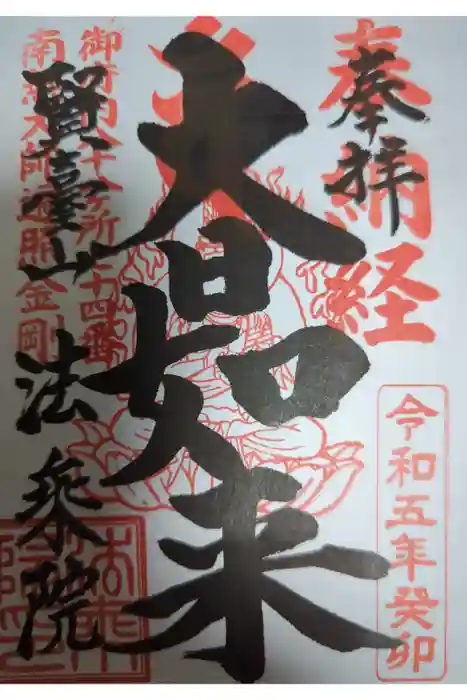 奉納経
奉拝
令和五年癸卯
大日如来
御府内八十八ヶ所七十四番
南無大師遍照金剛
賢臺山 法乘院